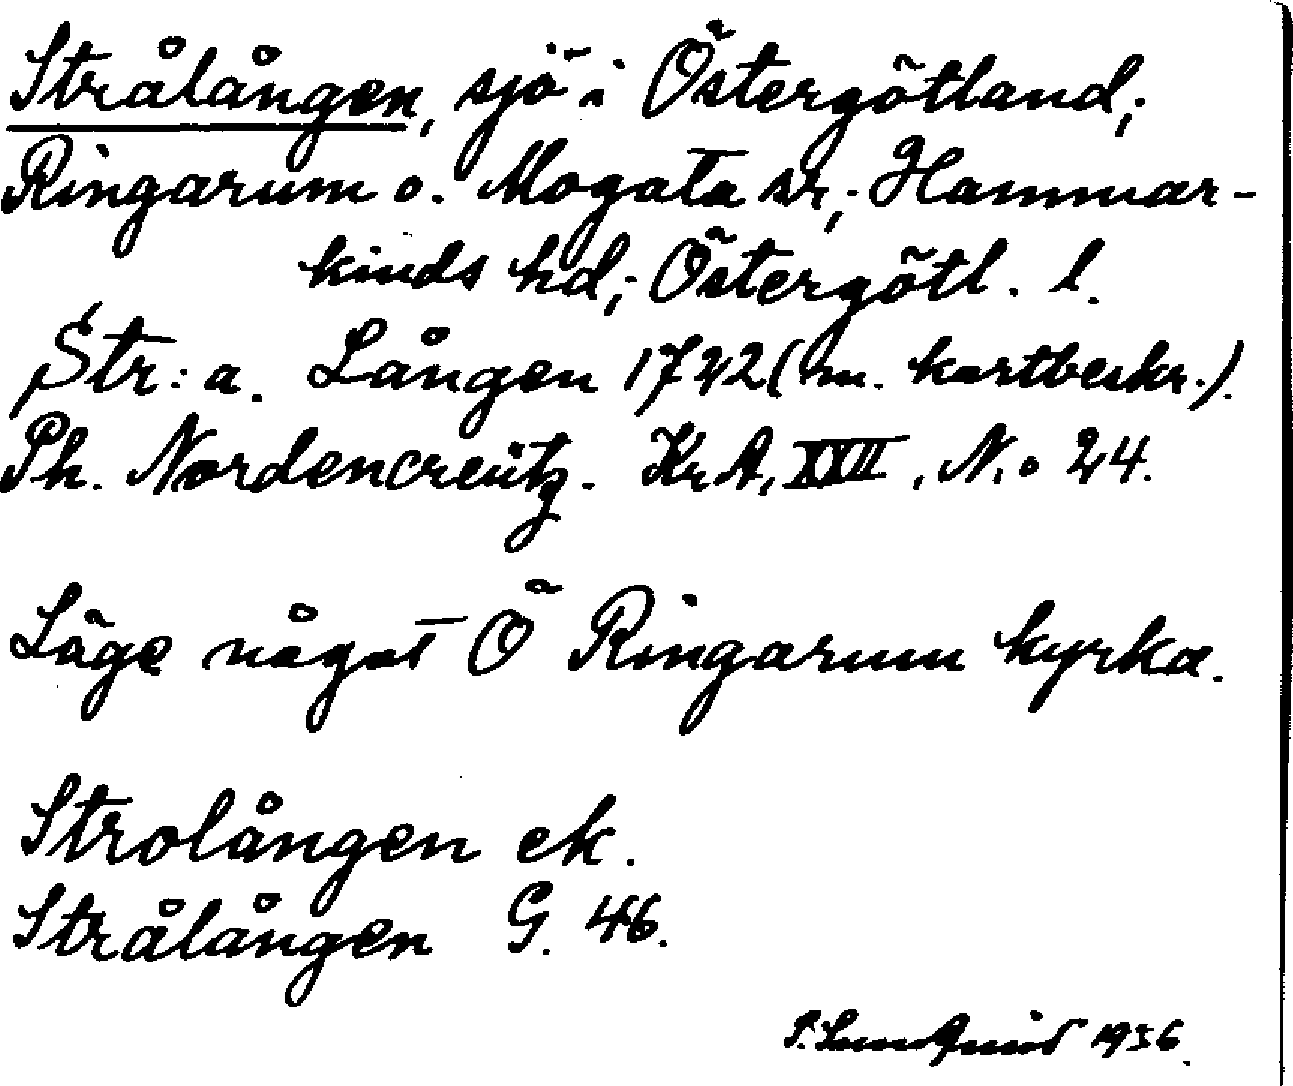 Strålången, sjö i Östergötland;
Ringarum o. Mogata sr; Hammar-
kinds hd; Östergötl. l.
Str: a. Lången 1722 (m. kartbeskr.).
Ph. Nordencreütz. Kr.A, XXII, N.o 24.
Läge något Ö Ringarum kyrka.
Strolången ek.
Strålången G. 46.
1936